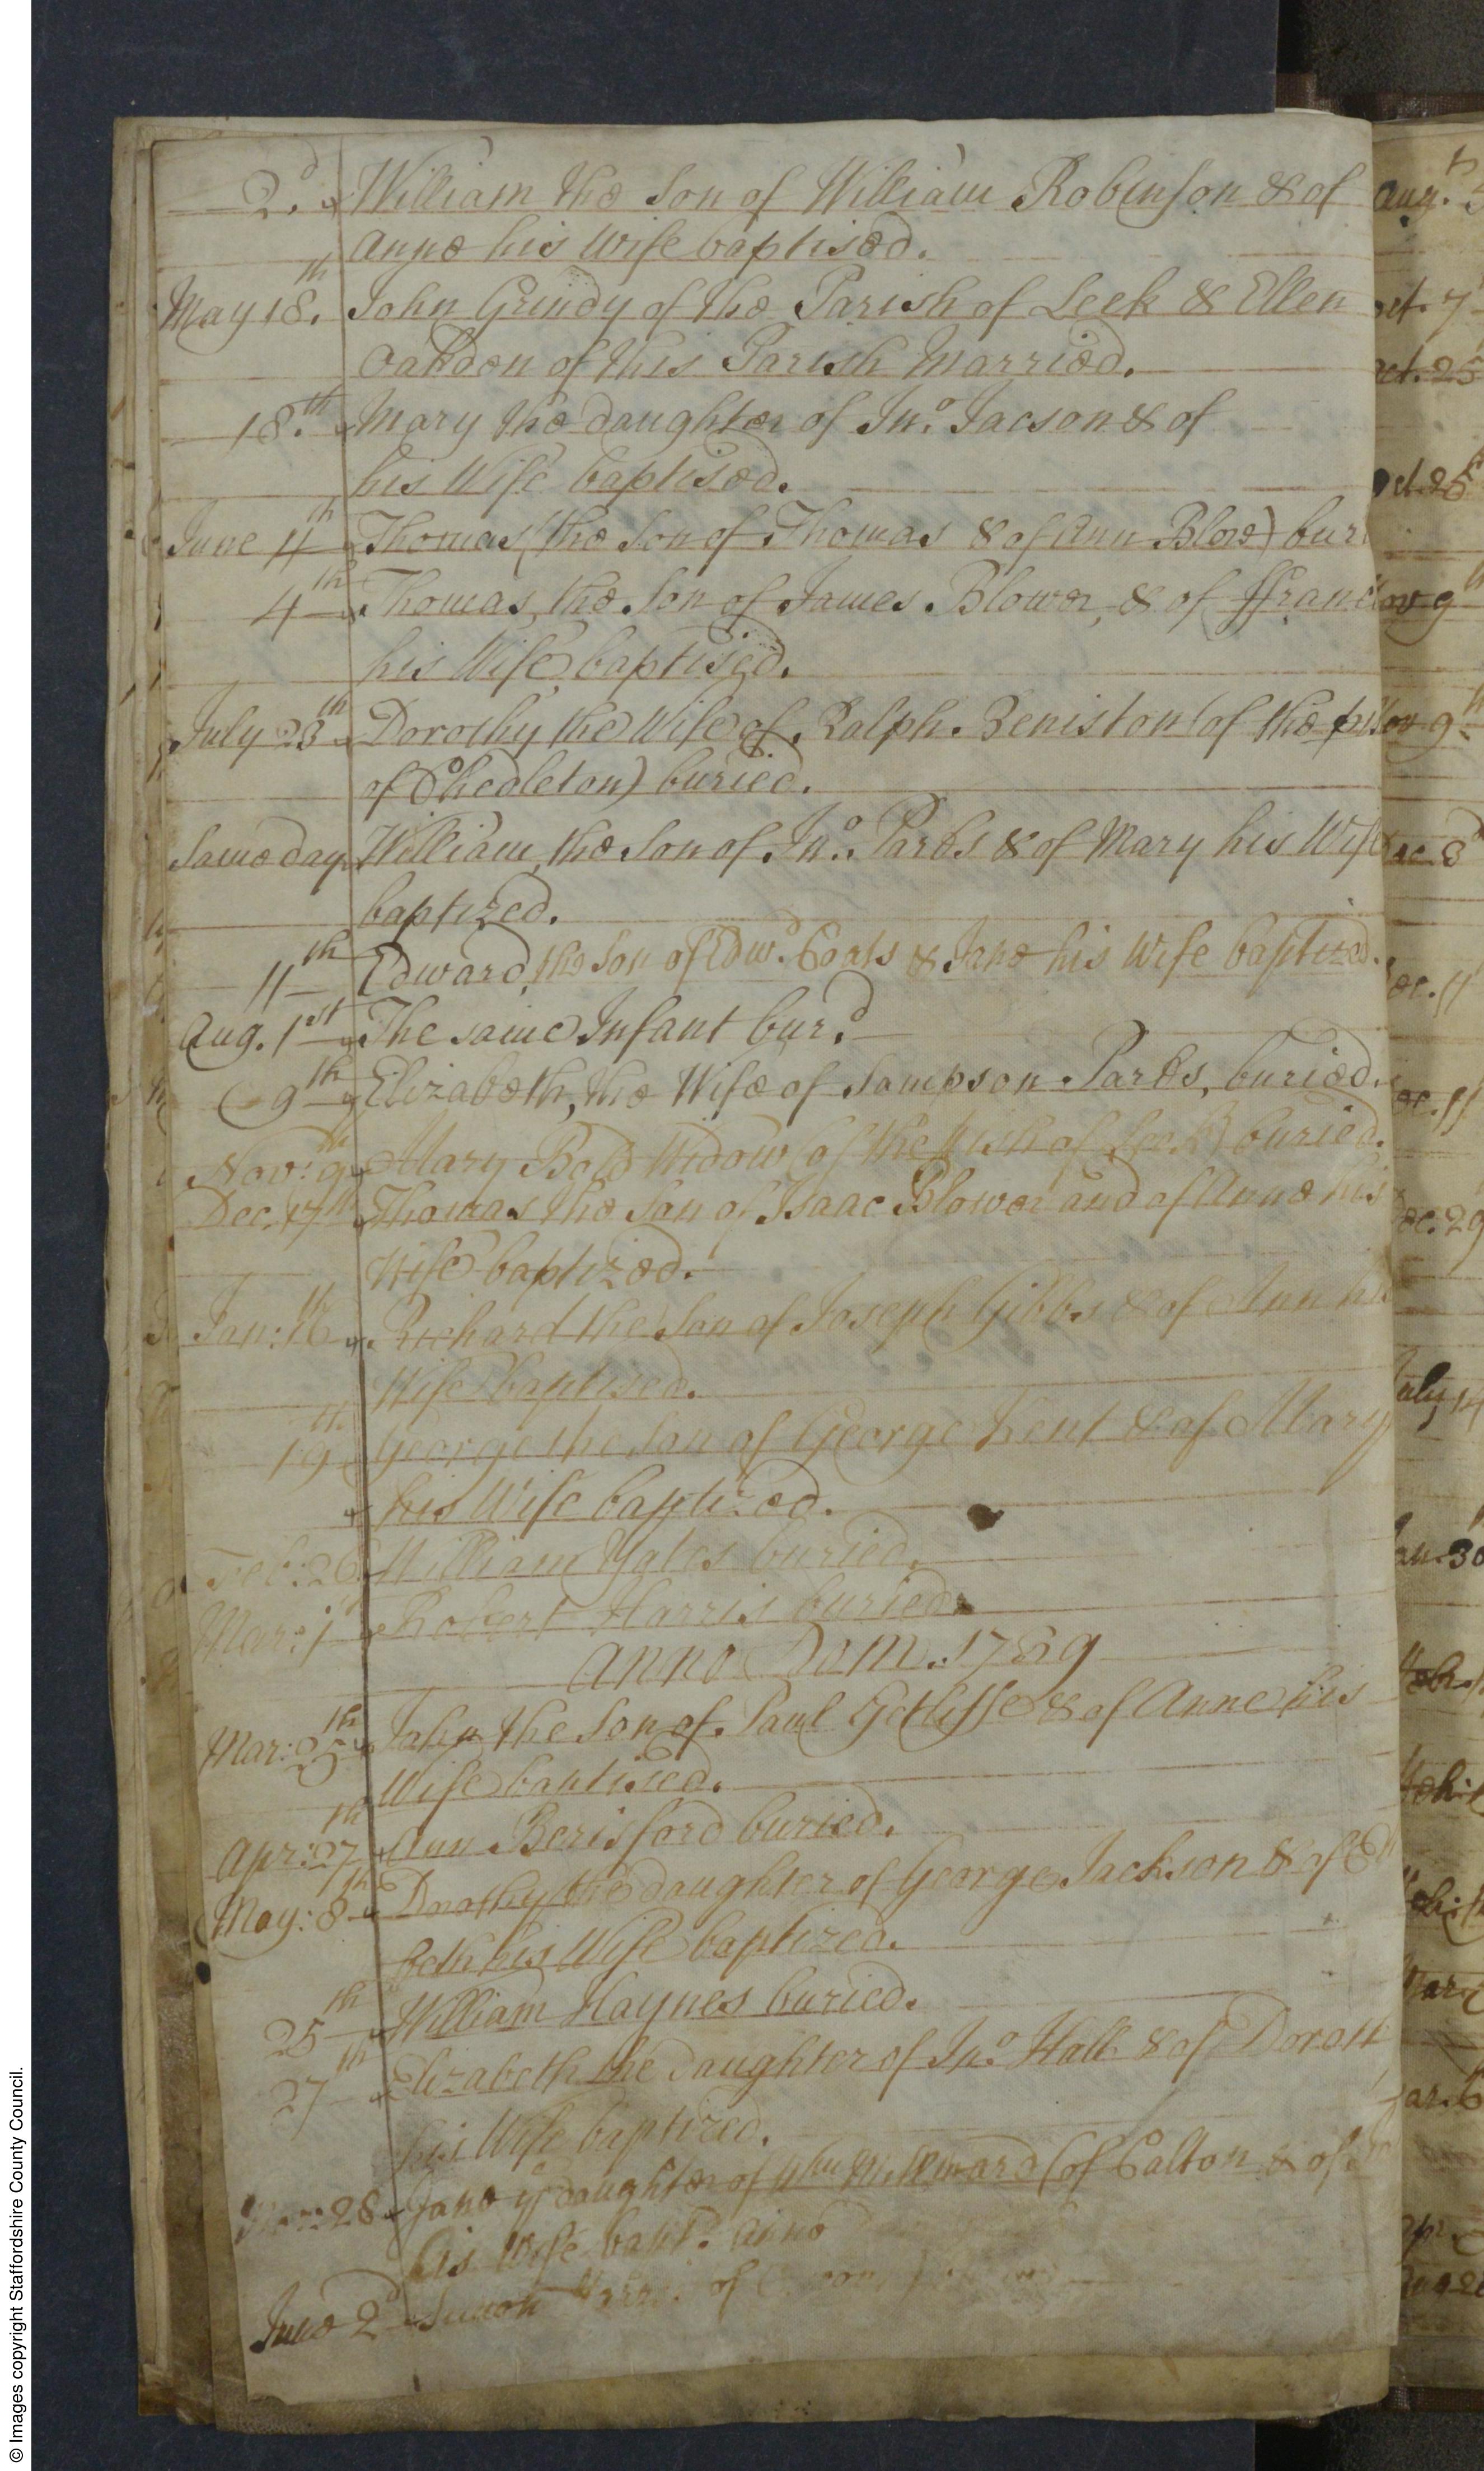 2d. William the Son of William Robinson & of
Anne his Wife baptised.
May 18th. John Grindy of the Parish of Leek & Ellen
Oakden of this Parish Married.
18th. Mary the daughter of Jno. Jacson & of
his Wife baptised.
June 4th Thomas (the Son of Thomas & of Ann Blore) buri
4th Thomas, the Son of James Blower, & of ffranc
his Wife baptised.
July 23th Dorothy the Wife of Ralph Beniston (of the
of Chedleton) buried.
Same day William, the Son of Jno. Parks & of Mary his Wife
baptized.
11th Edward, the Son of Edwd. Coats & Jane his Wife baptized.
Aug. 1st The same Infant burd.
9th Elizabeth, the Wife of Sampson Parks, buried.
Nov: 9th Mary Widow (of the Pish of Leek) buried.
Dec. 17th Thomas the Son of Isaac Blower and of Anne his
Wife baptized.
Jan: 16th Richard the Son of Joseph Gibbs & of Ann his
Wife baptised.
19th George the Son of George Kent & of Mary
his Wife baptized.
Feb: 26 William Yates buried.
Mar: 1 Robert Harris buried.
Anno Dom. 1729
Mar: 25th John the Son of Paul Getliffe & of Anne his
Wife baptised.
Apr: 27th Ann Berisford buried.
May: 8th Dorothy the daughter of George Jackson & of
beth his Wife baptized.
25th William Haynes buried.
27th Elizabeth the daughter of Jno. Hall & of Doroth
his Wife baptized.
28 Jane ye daughter of Wm Millward (of Calton & of
his Wife bapt.
June 2d Simon of
Aug.
Oct. 7
Oct. 25
Oct. 25
Nov 9
Nov 9
Dec. 8
Dec. 11
Dec. 11
Dec. 29
July 14
Jan. 30
Feb.
Feb:
Mar.
Mar. 6
Apr.
Aug 2
© Images copyright Staffordshire County Council.